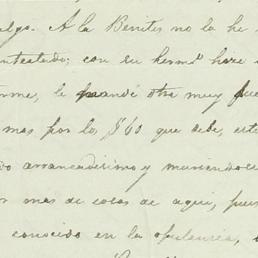 algo. A la Benites no la he
contestado; con su herm.ª hace
le mandé otra muy
mas por los $60 que debe, este
arrancadisimo y muriendo
mas de cosas de aqui, pues
conocido en la opulencia,